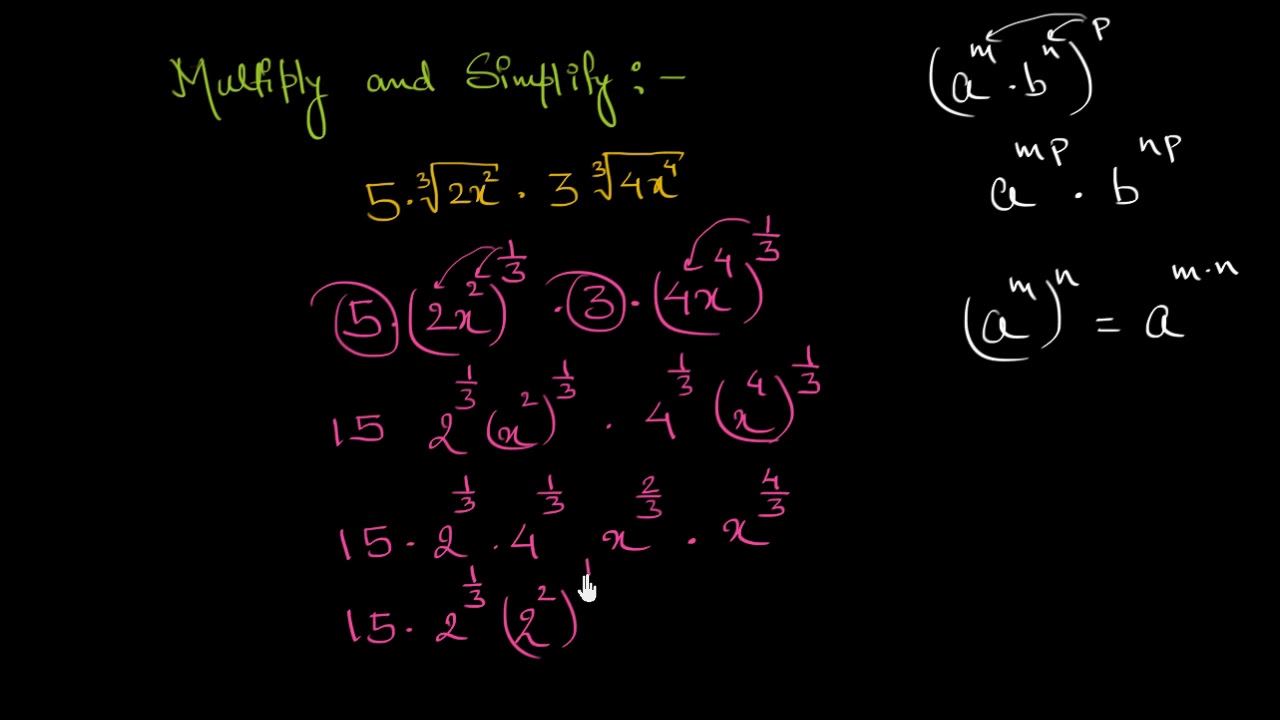 Multiply and Simplify :-
5 · ∛(2x²) · 3 ∛(4x⁴)
5 · (2x²)^(1/3) · 3 · (4x⁴)^(1/3)
15 2^(1/3) (x²)^(1/3) · 4^(1/3) (x⁴)^(1/3)
15 · 2^(1/3) · 4^(1/3) x^(2/3) · x^(4/3)
15 · 2^(1/3) (2²)^1
(a^m · b^n)^p
a^(mp) · b^(np)
(a^m)^n = a^(m·n)